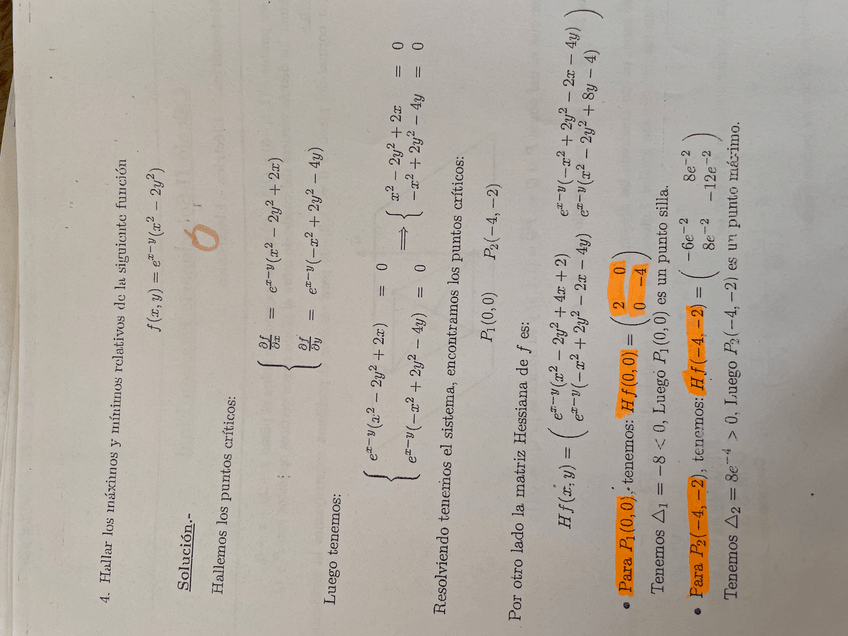 4. Hallar los máximos y mínimos relativos de la siguiente función
f(x, y) = e^{x−y}(x² − 2y²)
Solución.-
Hallemos los puntos críticos:
{ ∂f/∂x = e^{x−y}(x² − 2y² + 2x)
∂f/∂y = e^{x−y}(−x² + 2y² − 4y)
Luego tenemos:
{ e^{x−y}(x² − 2y² + 2x) = 0 ⟹ { x² − 2y² + 2x = 0
e^{x−y}(−x² + 2y² − 4y) = 0 −x² + 2y² − 4y = 0
Resolviendo tenemos el sistema, encontramos los puntos críticos:
P₁(0, 0) P₂(−4, −2)
Por otro lado la matriz Hessiana de f es:
Hf(x, y) = ( e^{x−y}(x² − 2y² + 4x + 2) e^{x−y}(−x² + 2y² − 2x − 4y)
e^{x−y}(−x² + 2y² − 2x − 4y) e^{x−y}(x² − 2y² + 8y − 4) )
• Para P₁(0, 0), tenemos: Hf(0, 0) = ( 2 0
0 −4 )
Tenemos △₁ = −8 < 0, Luego P₁(0, 0) es un punto silla.
• Para P₂(−4, −2), tenemos: Hf(−4, −2) = ( −6e⁻² 8e⁻²
8e⁻² −12e⁻² )
Tenemos △₂ = 8e⁻⁴ > 0, Luego P₂(−4, −2) es un punto máximo.